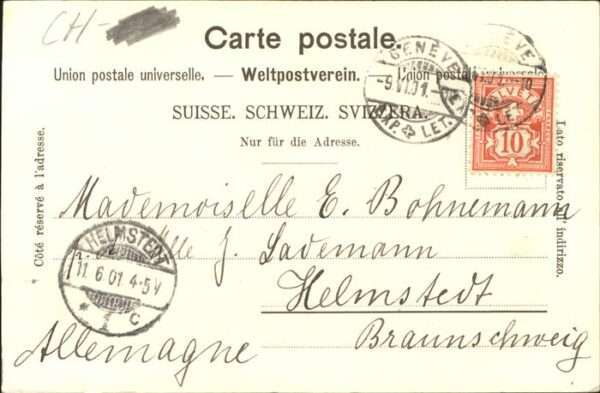 CH-
Carte postale.
Union postale universelle. — Weltpostverein. — Union postale
SUISSE. SCHWEIZ. SVIZZERA.
Nur für die Adresse.
Côté réservé à l'adresse.
Lato riservato all' indirizzo.
GENÈVE
-9.VI.01.
EXP. LET.
HELVETIA
10
Mademoiselle E. Bohnemann
Mlle J. Lademann
Helmstedt
Braunschweig
Allemagne
HELMSTEDT
11.6.01.4-5V
* 1 c